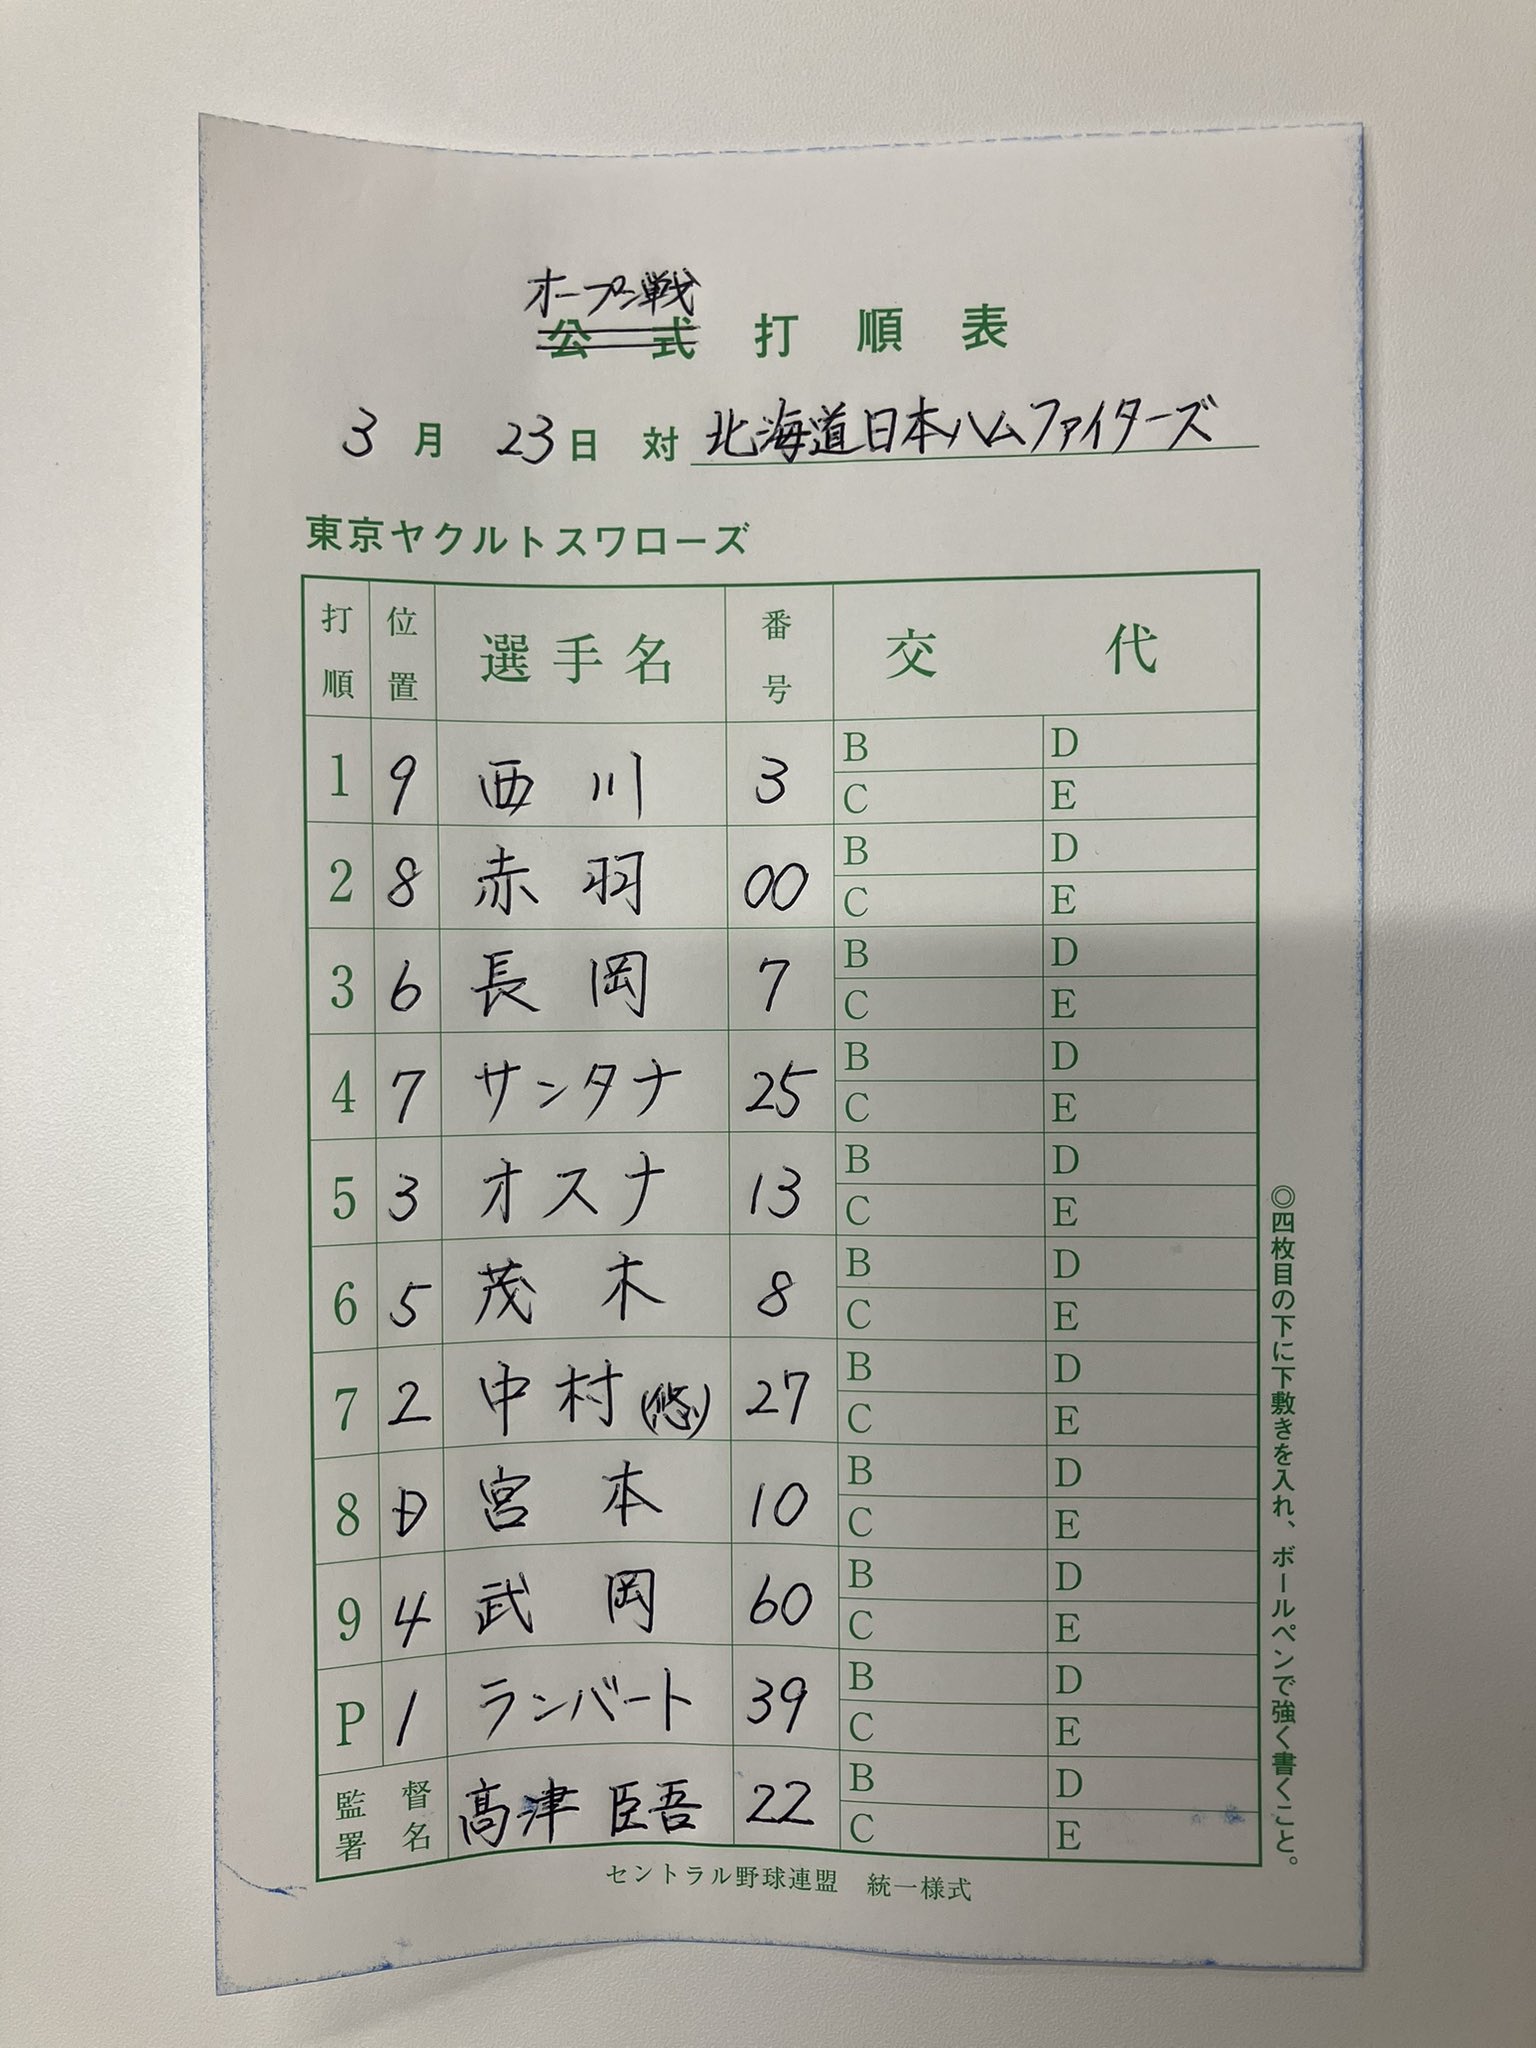 オープン戦
公式打順表
3月 23日 対 北海道日本ハムファイターズ
東京ヤクルトスワローズ
打順 位置 選手名 番号 交代
1 9 西川 3 B D
C E
2 8 赤羽 00 B D
C E
3 6 長岡 7 B D
C E
4 7 サンタナ 25 B D
C E
5 3 オスナ 13 B D
C E
6 5 茂木 8 B D
C E
7 2 中村(悠) 27 B D
C E
8 D 宮本 10 B D
C E
9 4 武岡 60 B D
C E
P 1 ランバート 39 B D
C E
監督署名 髙津臣吾 22 B D
C E
セントラル野球連盟 統一様式
◎四枚目の下に下敷きを入れ、ボールペンで強く書くこと。